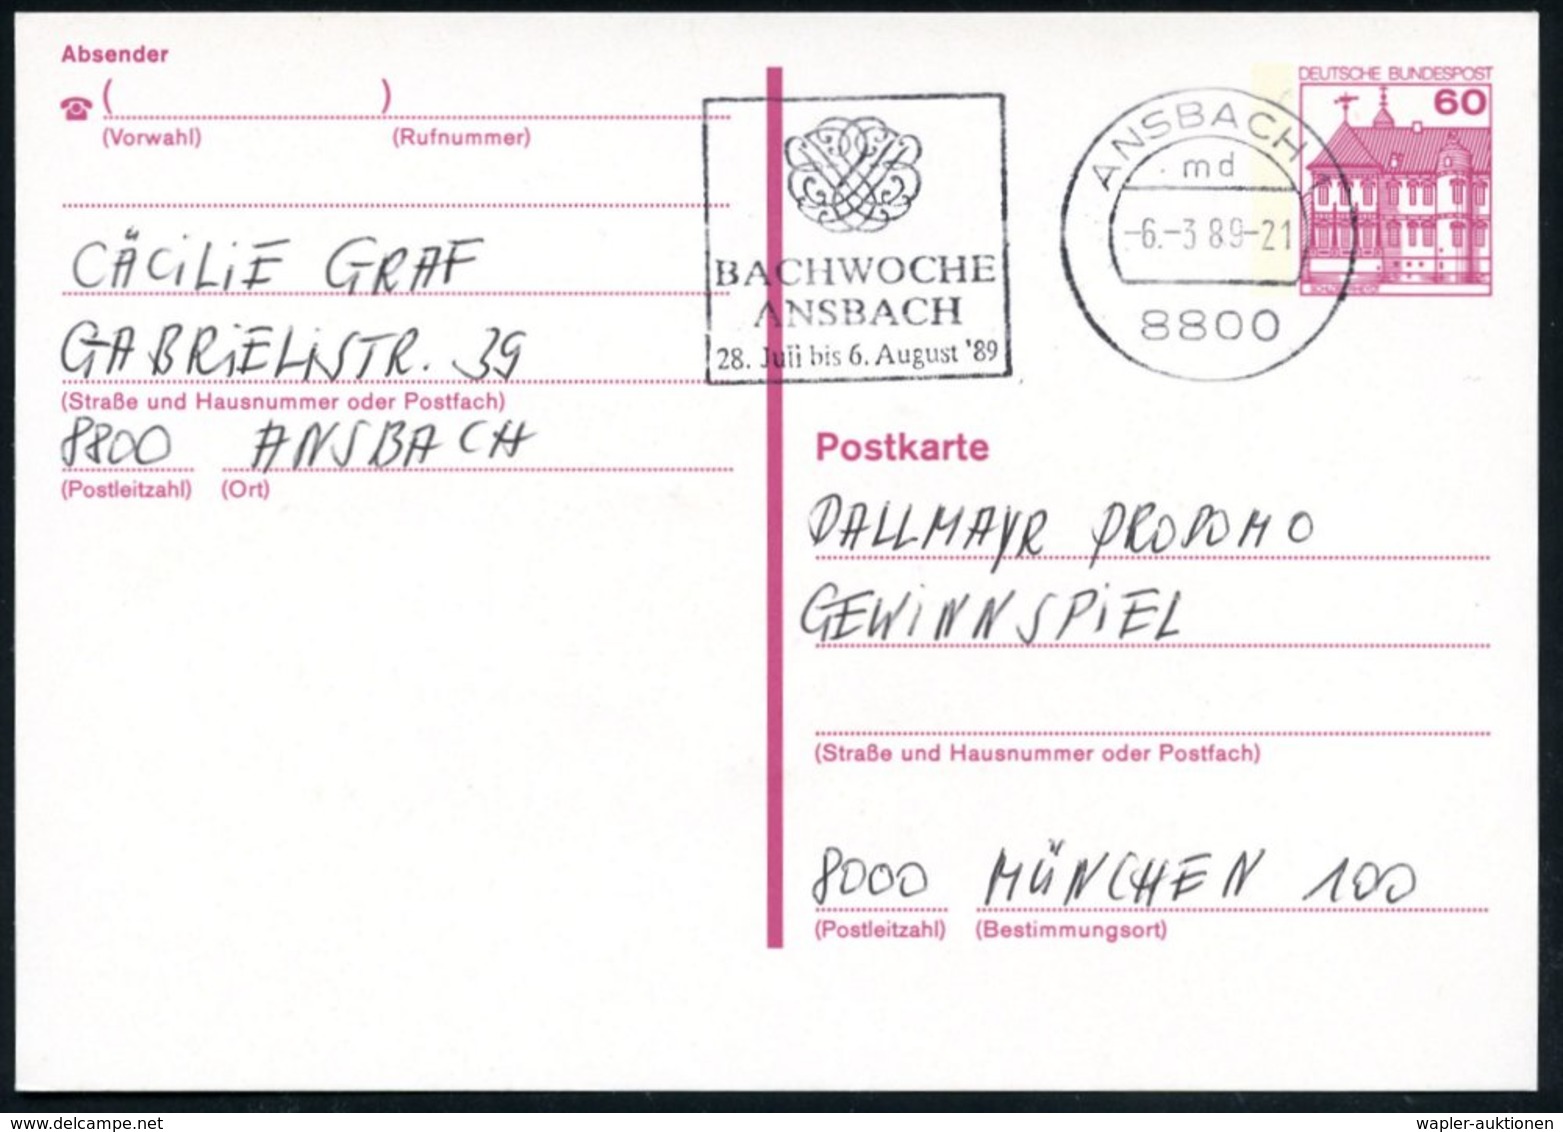 Absender
( )
(Vorwahl) (Rufnummer)
CÄCiLiE GRAF
GABRiELiSTR. 39
(Straße und Hausnummer oder Postfach)
8800 ANSBACH
(Postleitzahl) (Ort)
BACHWOCHE
ANSBACH
28. Juli bis 6. August '89
ANSBACH
md
-6.-3 89-21
8800
DEUTSCHE BUNDESPOST
60
Postkarte
DALLMAYR PRODOMO
GEWiNNSPiEL
(Straße und Hausnummer oder Postfach)
8000 MÜNCHEN 100
(Postleitzahl) (Bestimmungsort)
delcampe.net
wapler-auktionen